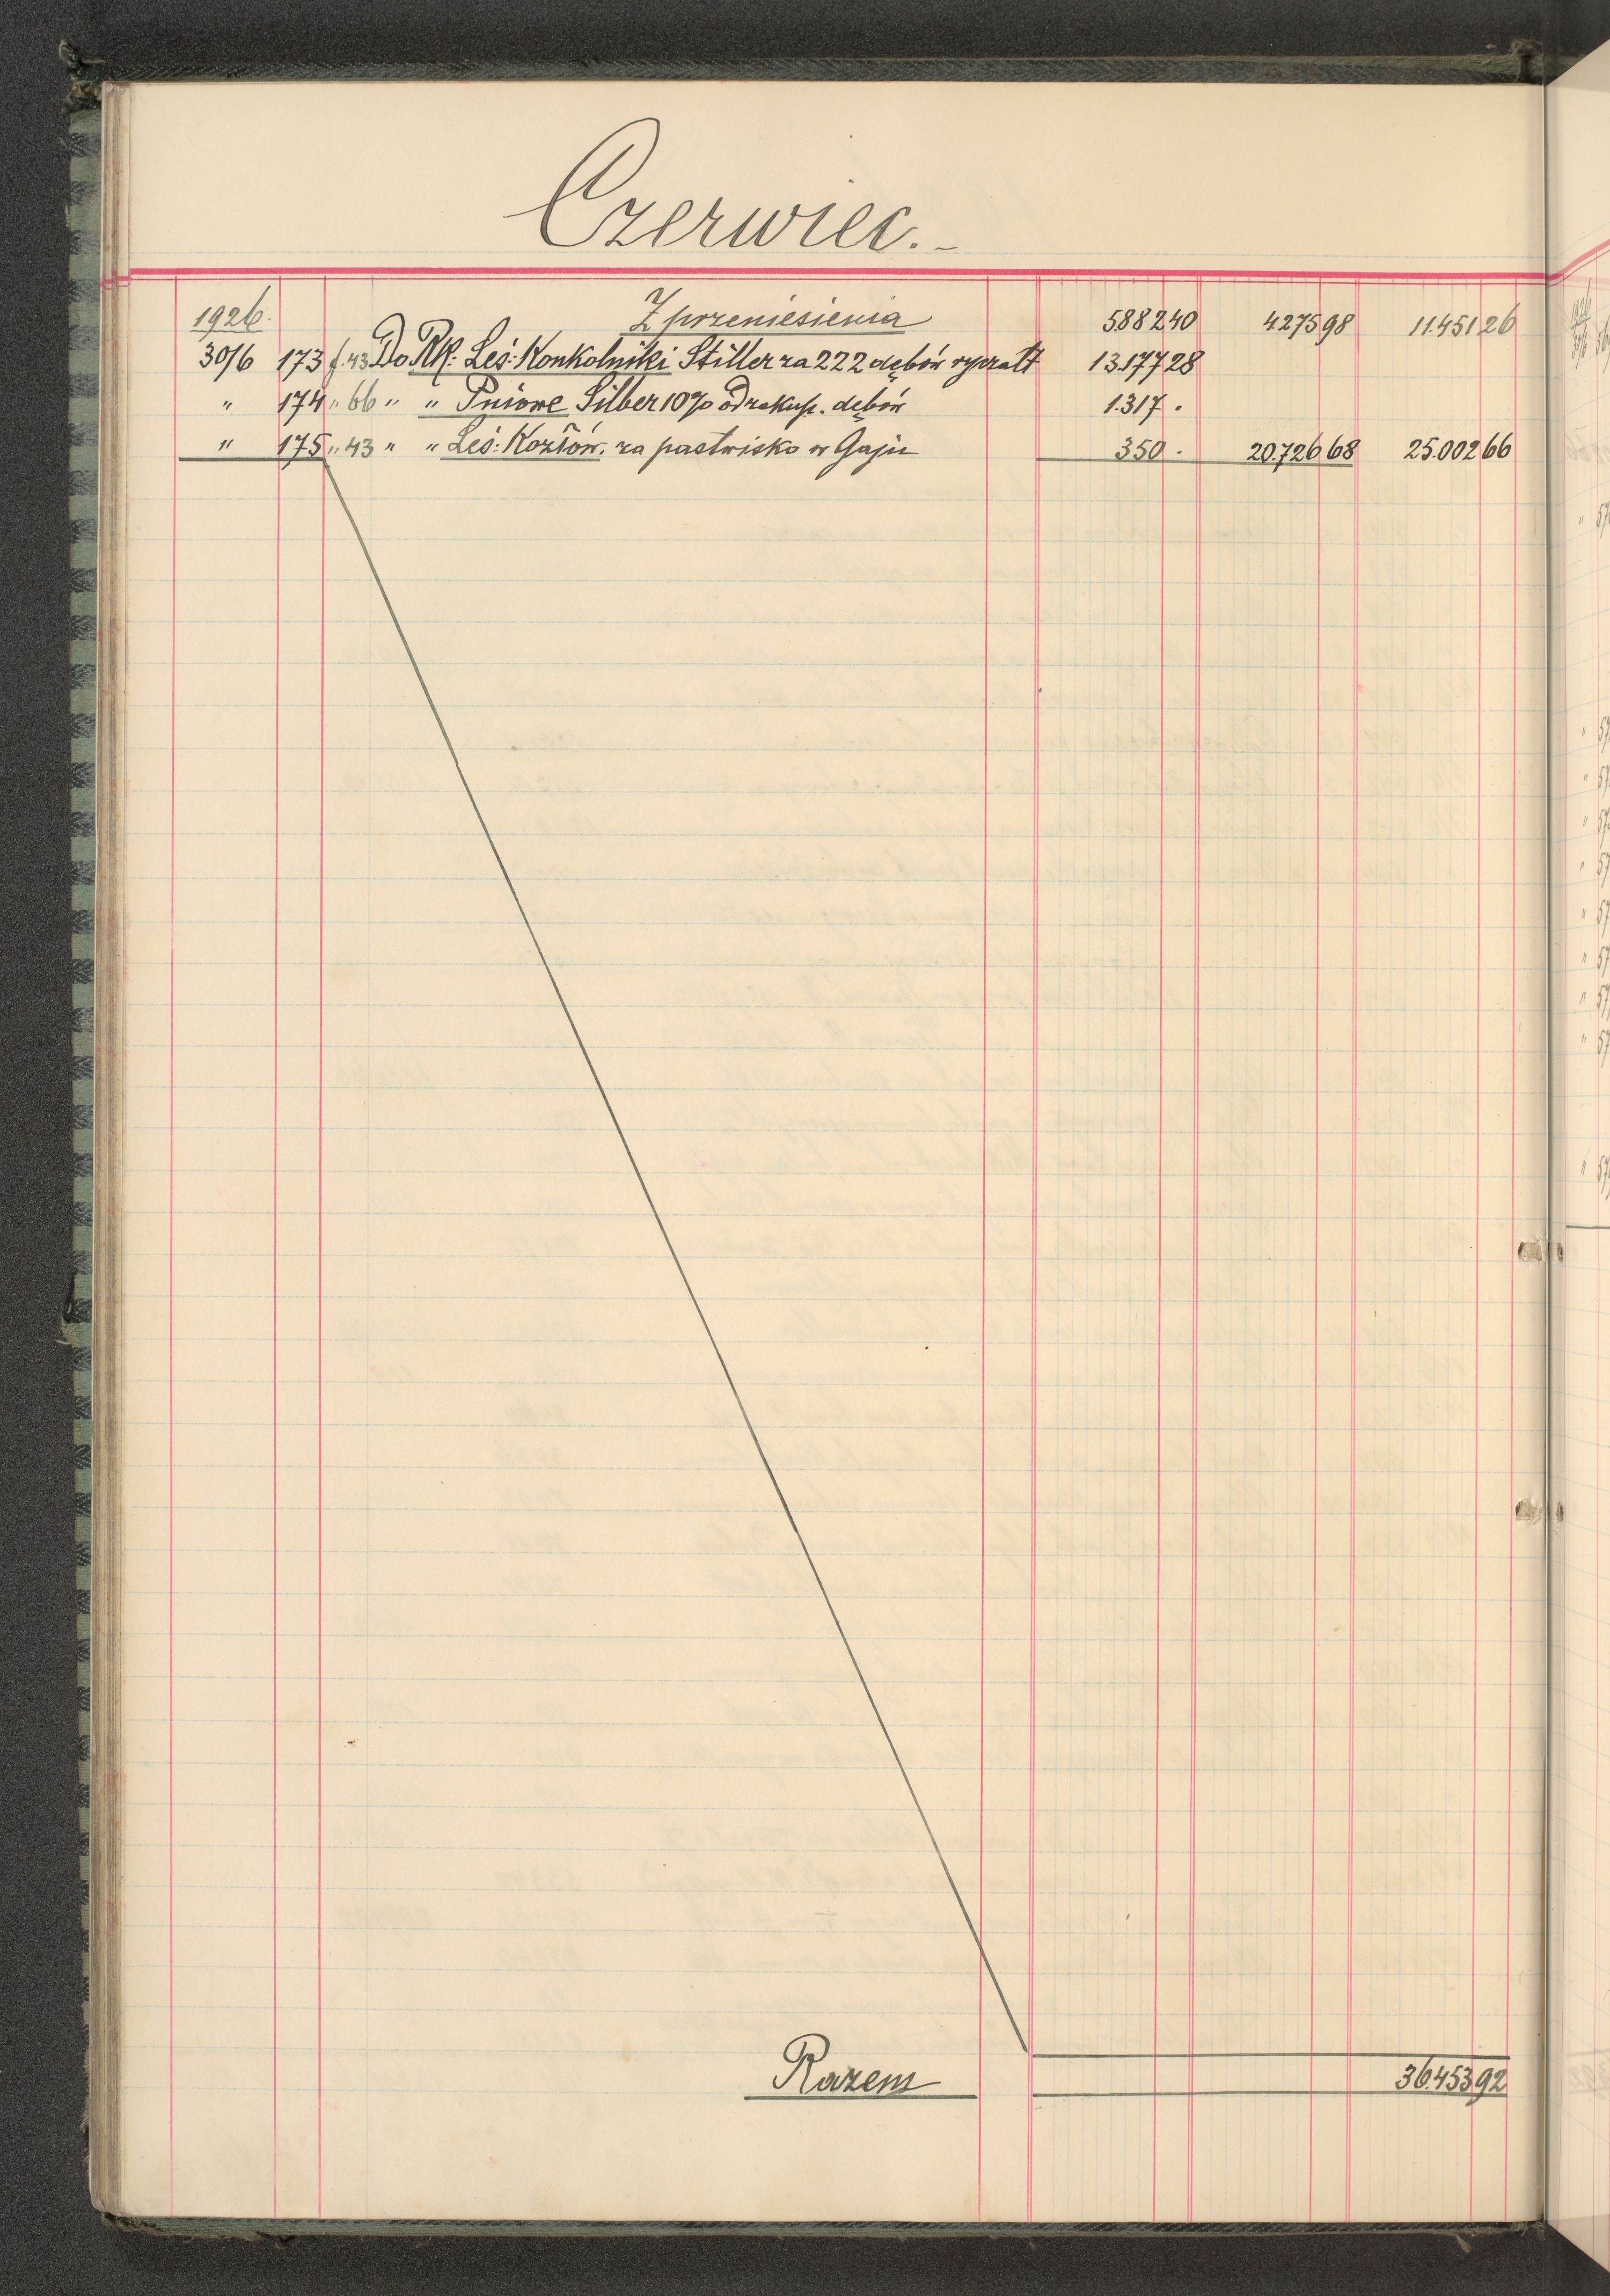 Czerwiec.-
1926. Z przeniesienia 5882 40 4275 98 11.451 26
30/6 173 f. 43 Do RK: Leś: Konkolniki Stiller za 222 dębów 13.177 28
" 174 " 66 " " Pniowe Silber 10% od zakup. dębów 1.317 .
" 175 " 43 " " Leś: Kozłów. za pastwisko w Gaju 350 . 20.726 68 25.002 66
Razem 36.453 92